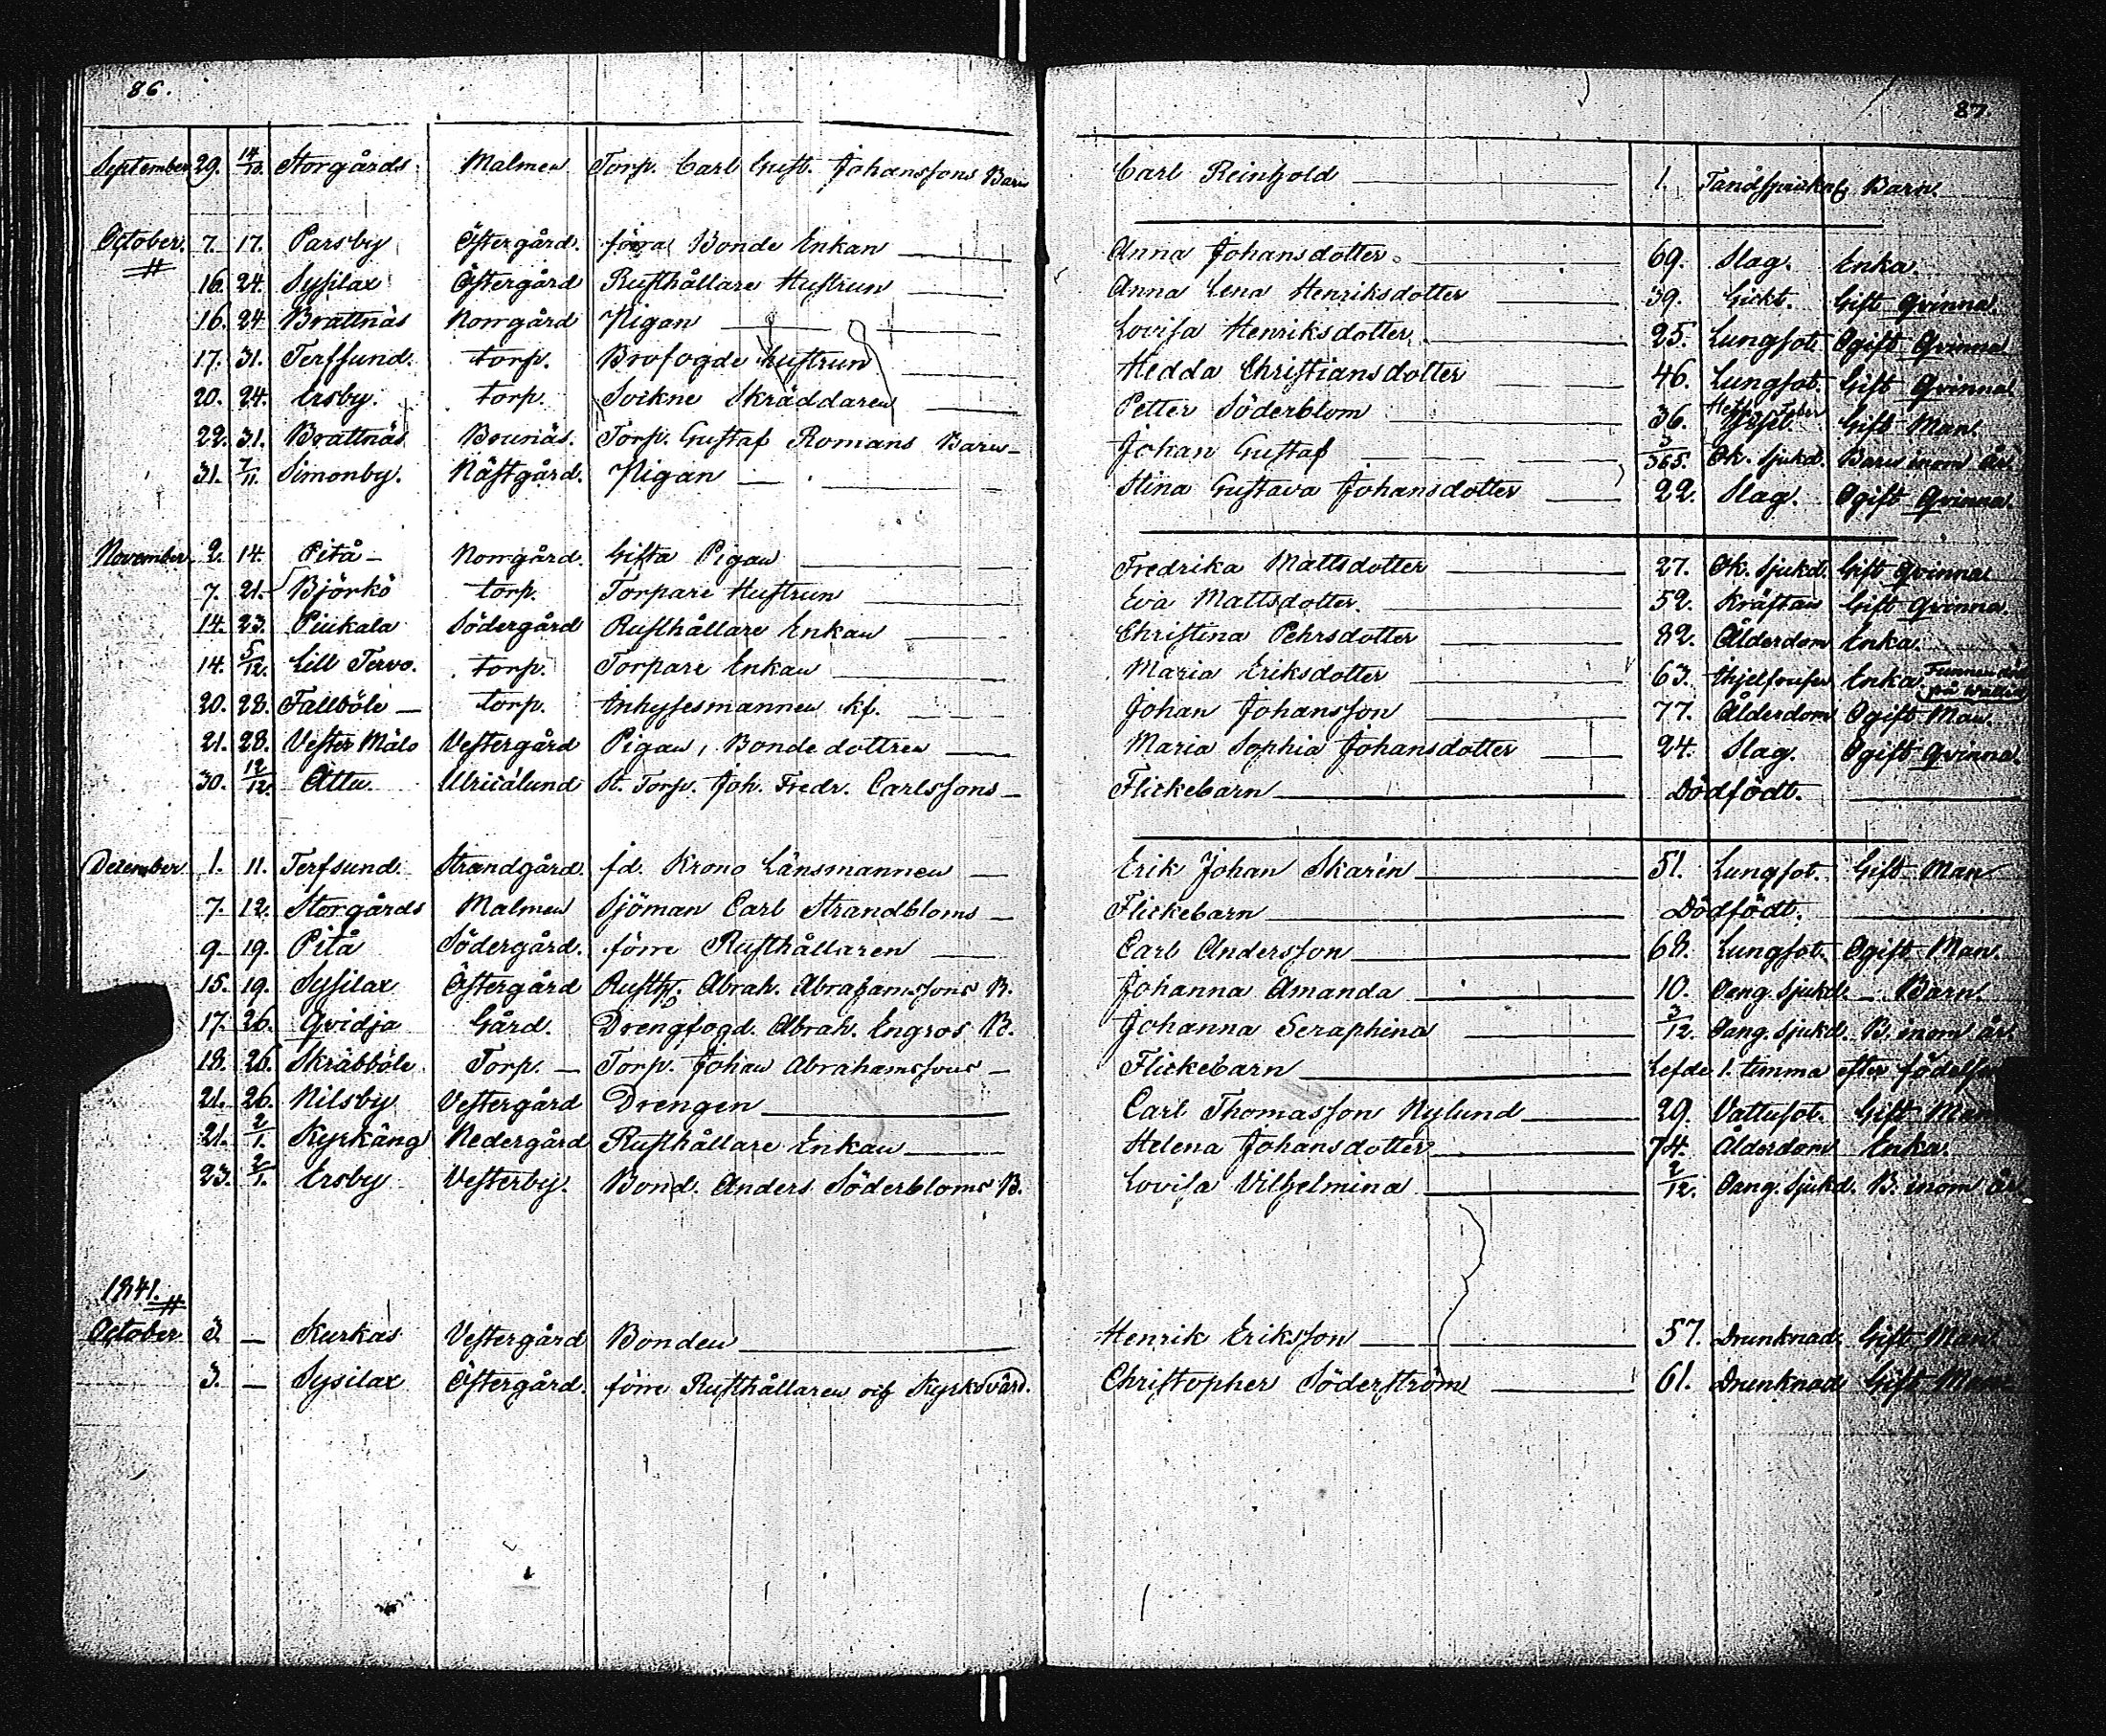 86.
87.
September 29. 14/10. Storgårds Malmen Torp. Carl Gust. Johanssons Barn Carl Reinhold 1. Tandsprickn. Barn.
October. 7. 17. Parsby Östergård. förra Bonde Enkan Anna Johansdotter 69. Slag. Enka
16. 24. Sysilax Östergård Rusthållare Hustrun Anna Lena Henriksdotter 39. Gickt. Gift Qvinna.
16. 24 Brattnäs Norrgård Pigan Lovisa Henriksdotter 25. Lungsot. Ogift Qvinna
17. 31. Terfsund. torp. Brofogde hustrun Hedda Christiansdotter 46. Lungsot. Gift Qvinna
20. 24. Ersby. torp. Sockne Skräddaren Petter Söderblom 36. Gift Man.
22. 31. Brattnäs Brunäs. Torp. Gustaf Romans Barn Johan Gustaf 3/365. Ok. Sjukd. Barn inom År
31. 7/11. Simonby. Nästgård. Pigan Stina Gustava Johansdotter 22. Slag. Ogift Qvinna.
November 2. 14. Pitå Norrgård. Gifta Pigan Fredrika Mattsdotter 27. Ok. Sjukd. Gift Qvinna
7. 21. Björkö torp. Torpare Hustrun Eva Mattsdotter. 52. Kräftan Gift Qvinna.
14. 23. Piukala Södergård Rusthållare Enkan Christina Pehrsdotter 82. Ålderdom Enka.
14. 5/12. Lill Tervo. torp. Torpare Enkan Maria Eriksdotter 63. Ihjelfrusen Enka. Funnen död på
20. 28. Fallböle torp. Inhysesmannen kf. Johan Johansson 77. Ålderdom Ogift Man.
21. 28. Vester Mälo Vestergård Pigan, Bondedottren Maria Sophia Johansdotter 24. Slag. Ogift Qvinna.
30. 12/12. Attu. Ulricælund St. Torp. Joh. Fredr. Carlssons Flickebarn Dödfödt.
December 1. 11. Terfsund. Strandgård. fd. Krono Länsmannen Erik Johan Skarén 51. Lungsot. Gift Man
7. 12. Storgårds Malmen Sjöman Carl Strandbloms Flickebarn Dödfödt.
9. 19. Pitå Södergård. förre Rusthållaren Carl Andersson 68. Lungsot. Ogift Man.
15. 19. Sysilax Östergård Rusth. Abrah. Abrahamssons B. Johanna Amanda 10. Oang. Sjukd. Barn.
17. 26. Qvidja Gård. Drengfogd. Abrah. Engros B. Johanna Seraphina 3/12. Oang. Sjukd. B. inom år.
18. 26. Skräbböle Torp. Torp. Johan Abrahamssons Flickebarn Lefde 1. timma efter födelsen
21. 26. Nilsby Vestergård Drengen Carl Thomasson Nylund 29. Vattusot. Gift Man
21. 2/1. Kyrkäng Nedergård Rusthållare Enkan Helena Johansdotter 74. Ålderdom Enka.
23. 2/1. Ersby Vesterby. Bond. Anders Söderbloms B. Lovisa Vilhelmina 2/12. Oang. Sjukd. B. inom år
1841.
October 3. — Kurkas Vestergård Bonden Henrik Eriksson 57. Drunknad. Gift Man
3. — Sysilax Östergård. förre Rusthållaren och Kyrkovärd. Christopher Söderström 61. Drunknad Gift Man